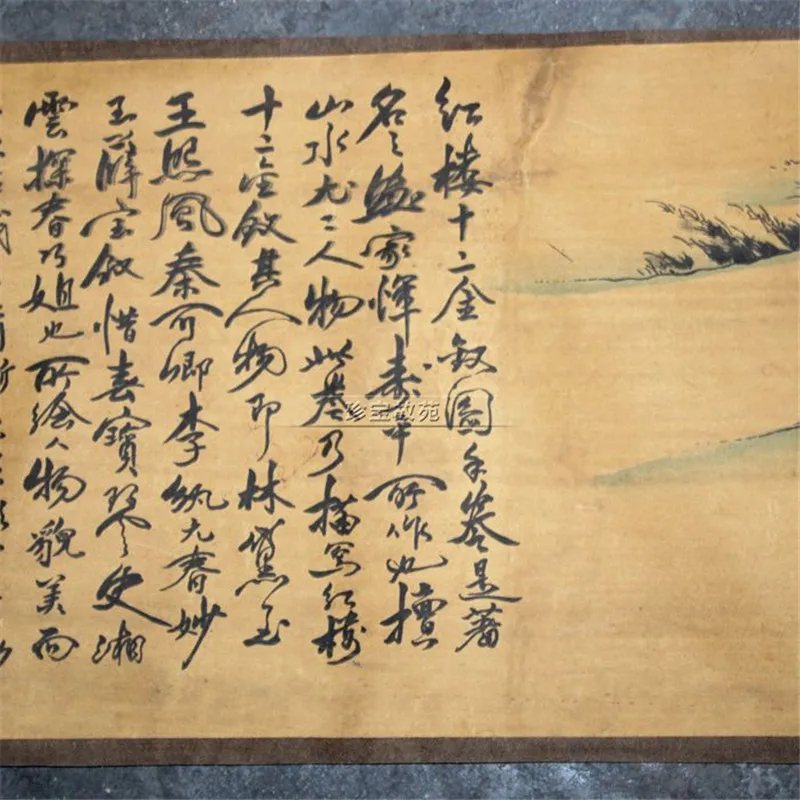 红楼十二金釵圖手卷是著
名之畫家惲寿平所作也擅
山水尤工人物此卷乃描写红楼
十二金釵其人物即林黛玉
王熙風秦可卿李纨元春妙
玉薛宝釵惜春寶琴史湘
雲探春巧姐也所绘人物貌美而
珍宝故苑